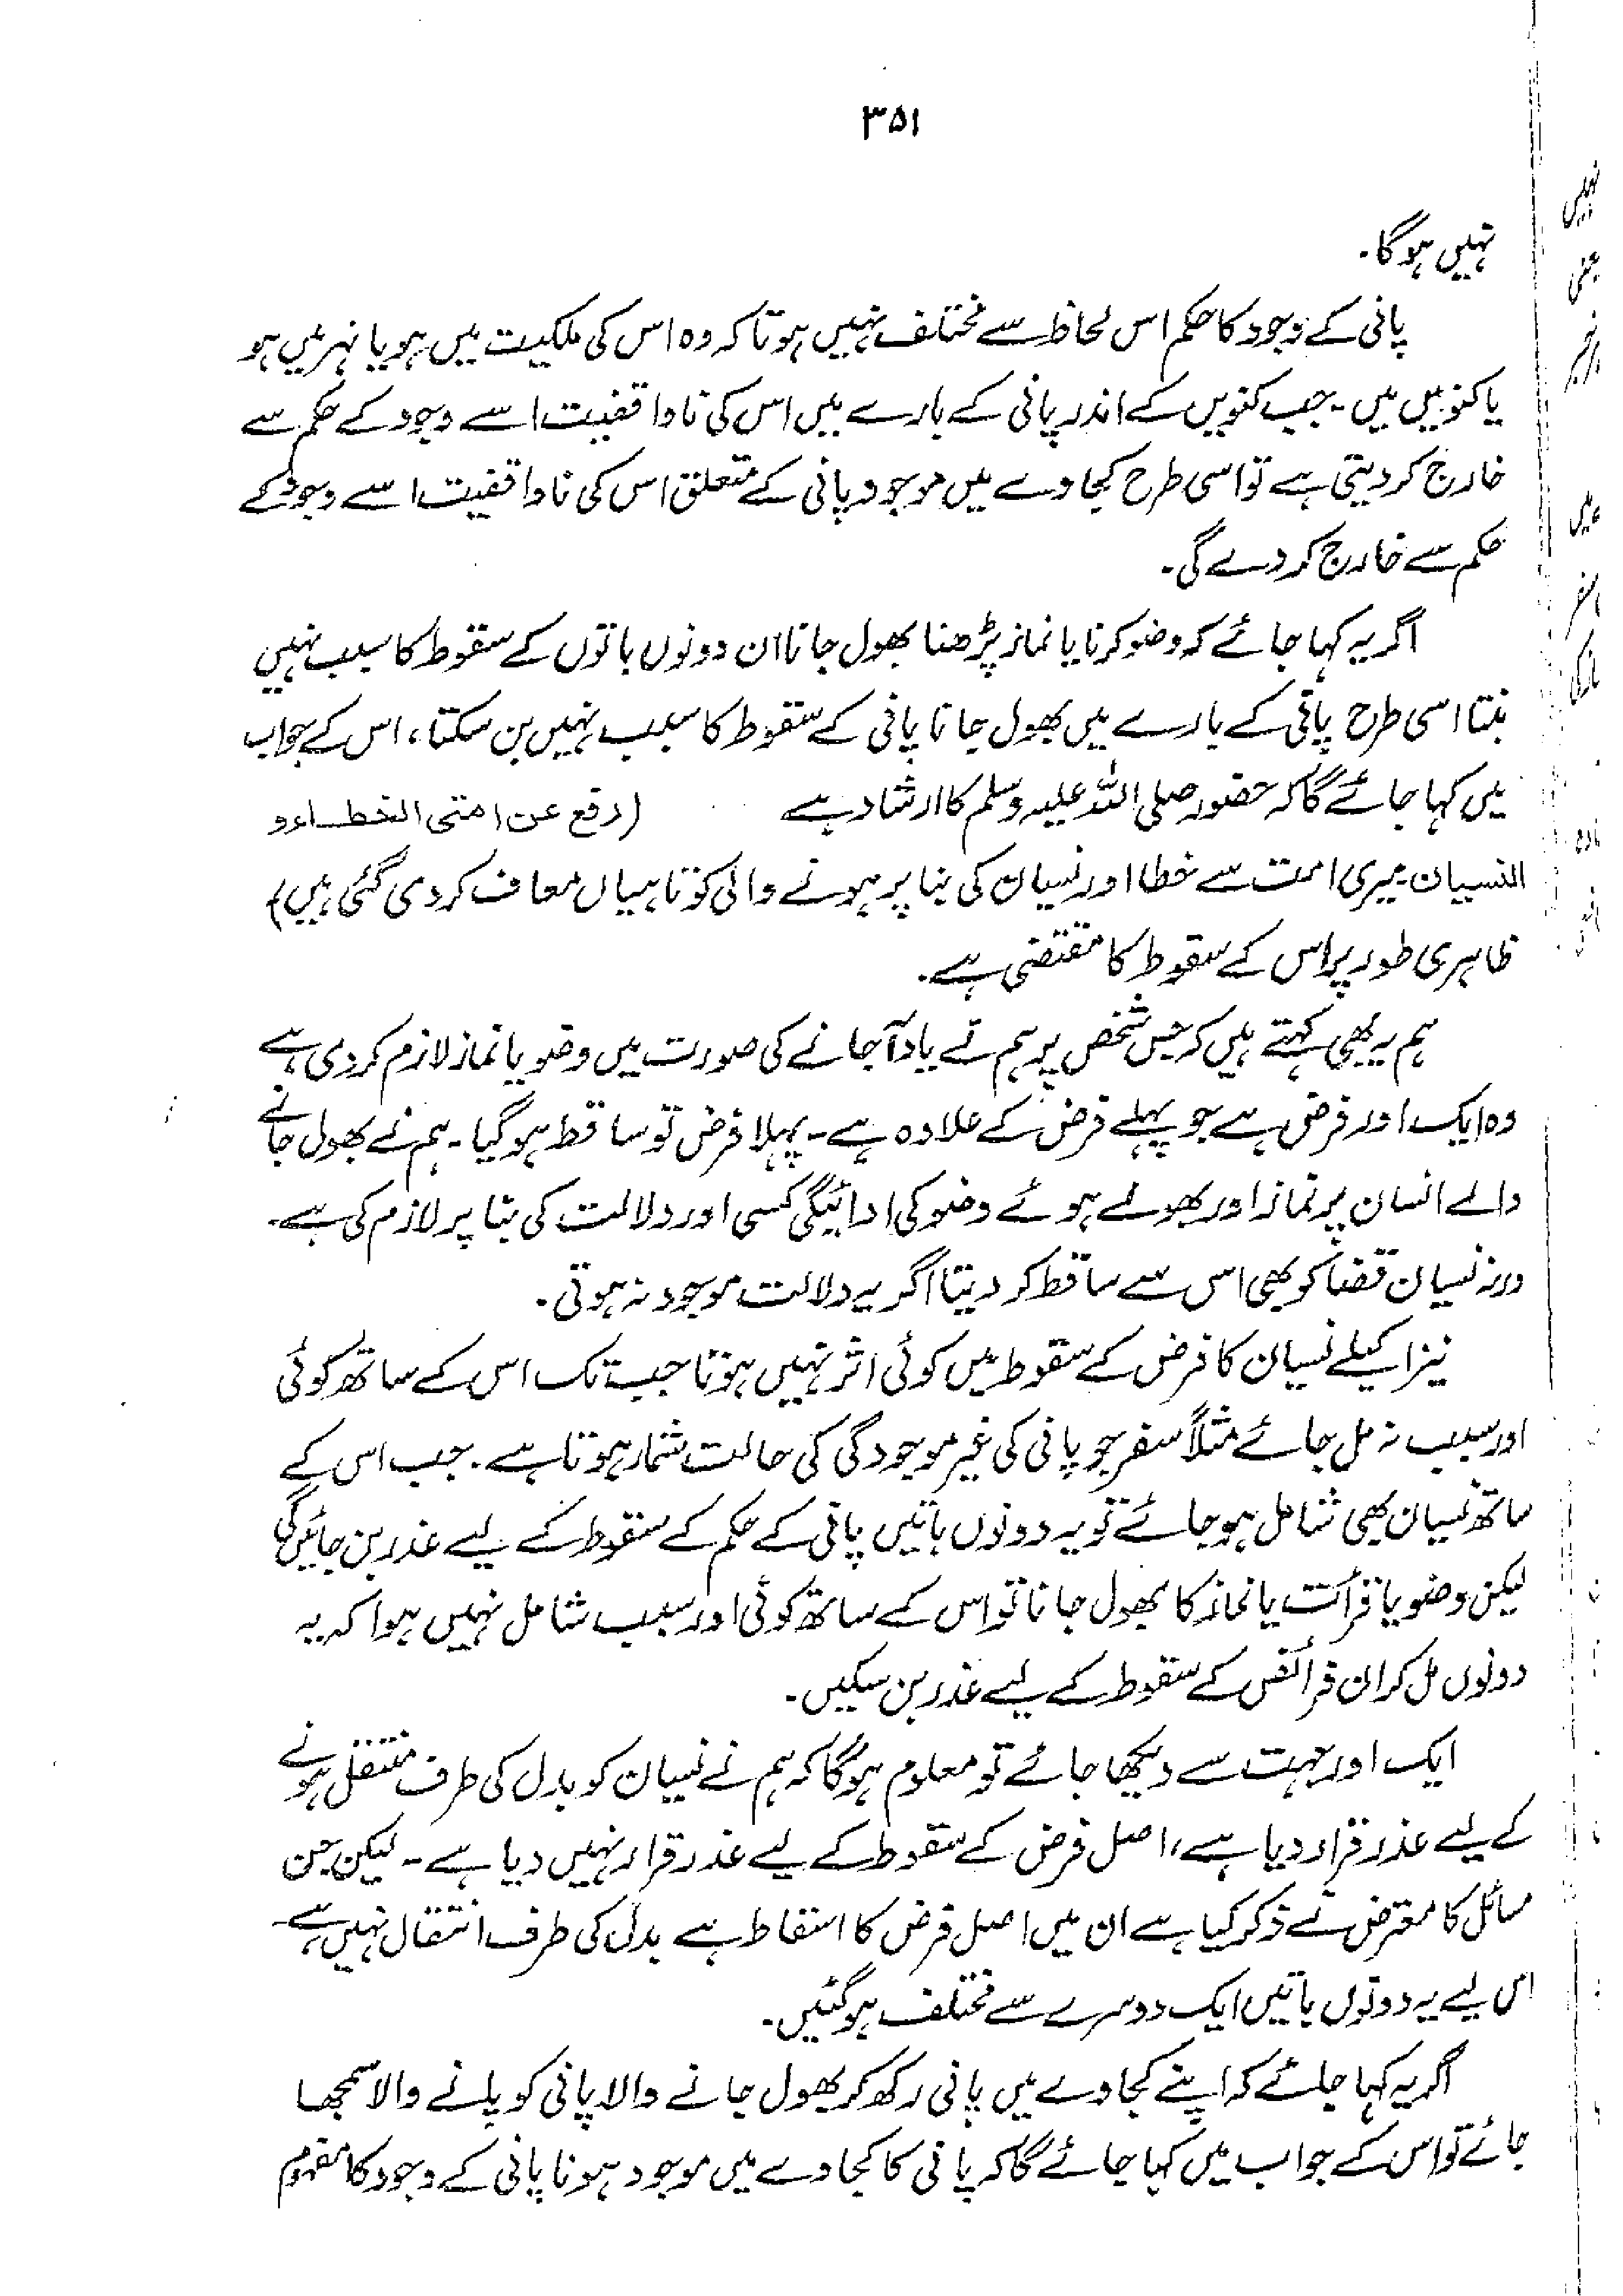 ۳۵۱
نہیں ہوگا۔
پانی کے وجود کا حکم اس لحاظ سے مختلف نہیں ہوتا کہ وہ اس کی ملکیت میں ہو یا نہر میں ہو
یا کنویں میں۔ جب کنویں کے اندر پانی کے بارے میں اس کی ناواقفیت اسے وجود کے حکم سے
خارج کر دیتی ہے تو اسی طرح کجاوے میں موجود پانی کے متعلق اس کی ناواقفیت اسے وجود کے
حکم سے خارج کر دے گی۔
اگر یہ کہا جائے کہ وضو کرنا یا نماز پڑھنا بھول جانا ان دونوں باتوں کے سقوط کا سبب نہیں
بنتا اسی طرح پانی کے بارے میں بھول جانا پانی کے سقوط کا سبب نہیں بن سکتا، اس کے جواب
میں کہا جائے گا کہ حضور صلی اللہ علیہ وسلم کا ارشاد ہے (رفع عن امتی الخطاء و
النسیان میری امت سے خطا اور نسیان کی بنا پر ہونے والی کوتاہیاں معاف کر دی گئی ہیں)
ظاہری طور پر اس کے سقوط کا مقتضی ہے۔
ہم یہ بھی کہتے ہیں کہ جس شخص پر ہم نے یاد آ جانے کی صورت میں وضو یا نماز لازم کر دی ہے
وہ ایک اور فرض ہے جو پہلے فرض کے علاوہ ہے۔ پہلا فرض تو ساقط ہو گیا۔ ہم نے بھول جانے
والے انسان پر نماز اور بھولے ہوئے وضو کی ادائیگی کسی اور دلالت کی بنا پر لازم کی ہے۔
ورنہ نسیان قضا کو بھی اس سے ساقط کر دیتا اگر یہ دلالت موجود نہ ہوتی۔
نیز اکیلے نسیان کا فرض کے سقوط میں کوئی اثر نہیں ہوتا جب تک اس کے ساتھ کوئی
اور سبب نہ مل جائے مثلاً سفر جو پانی کی غیر موجودگی کی حالت شمار ہوتا ہے۔ جب اس کے
ساتھ نسیان بھی شامل ہو جائے تو یہ دونوں باتیں پانی کے حکم کے سقوط کے لیے عذر بن جائیں گی
لیکن وضو یا قرأت یا نماز کا بھول جانا تو اس کے ساتھ کوئی اور سبب شامل نہیں ہوا کہ یہ
دونوں مل کر ان فرائض کے سقوط کے لیے عذر بن سکیں۔
ایک اور جہت سے دیکھا جائے تو معلوم ہوگا کہ ہم نے نسیان کو بدل کی طرف منتقل ہونے
کے لیے عذر قرار دیا ہے، اصل فرض کے سقوط کے لیے عذر قرار نہیں دیا ہے۔ لیکن جن
مسائل کا معترض نے ذکر کیا ہے ان میں اصل فرض کا اسقاط ہے بدل کی طرف انتقال نہیں ہے۔
اس لیے یہ دونوں باتیں ایک دوسرے سے مختلف ہو گئیں۔
اگر یہ کہا جائے کہ اپنے کجاوے میں پانی رکھ کر بھول جانے والا پانی کو پانے والا سمجھا
جائے تو اس کے جواب میں کہا جائے گا کہ پانی کا کجاوے میں موجود ہونا پانی کے وجود کا مفہوم